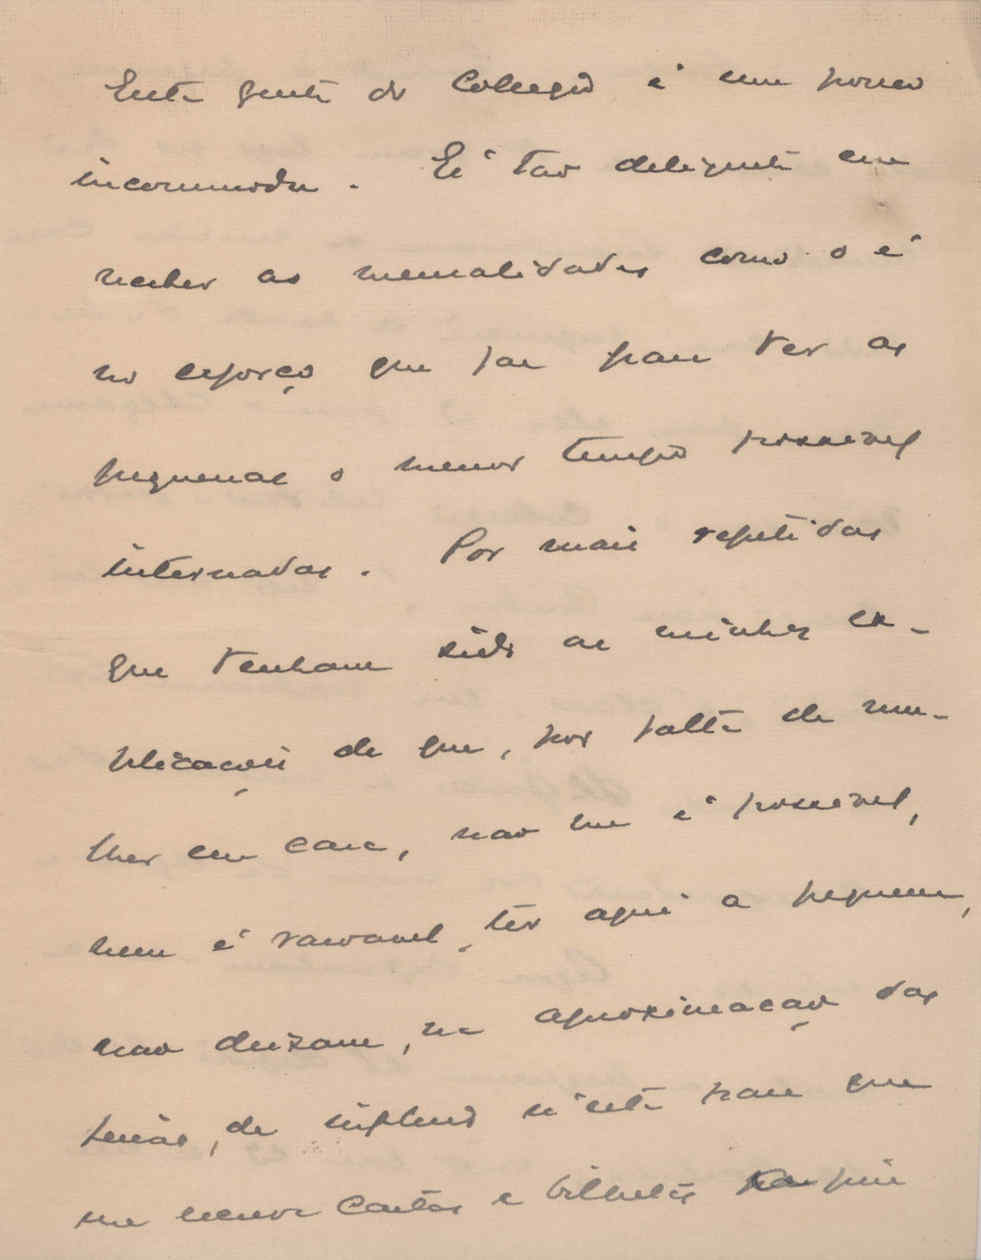 Esta gente do Collegio é um pouco
incommoda. É tao deligente em
receber as mensalidades como o é
no esforço que faz para ter as
pequenas o menor tempo possivel
internadas. Por mais repetidas
que tenham sido as minhas ex-
plicações de que, por falta de mu-
lher em casa, nao me é possivel,
nem é razoavel, ter aqui a pequena,
nao deixam, na aproximaçao das
ferias, de insistencia para que
me escreva cartas e bilhetes